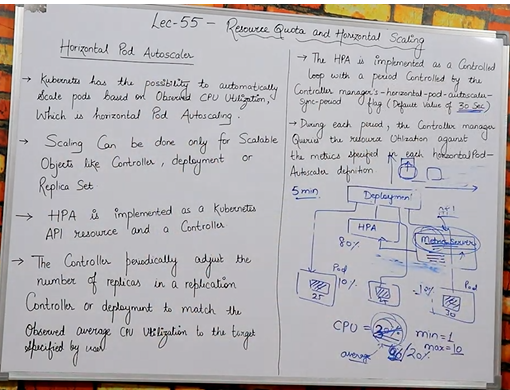 Lec-55 - Resource Quota and Horizontal Scaling
Horizontal Pod Autoscaler
→ Kubernetes has the possibility to automatically
Scale pods based on Observed CPU Utilization,
Which is horizontal Pod Autoscaling.
→ Scaling Can be done only for Scalable
Objects like Controller, deployment or
Replica Set
→ HPA is implemented as a Kubernetes
API resource and a Controller
→ The Controller periodically adjust the
number of replicas in a replication
Controller or deployment to match the
Observed average CPU Utilization to the target
Specified by user
→ The HPA is implemented as a Controlled
loop with a period Controlled by the
Controller manager's-horizontal-pod-autoscaler-
sync-period flag (Default Value of 30 Sec)
→ During each period, the Controller manager
Queries the resource Utilisation against
the metrics specified in each horizontalPod-
Autoscaler definition
5 min
Deployment
API
HPA
Metric Server
80%
Pod
10%
25
Pod
30
CPU =
20%
min = 1
max = 10
average